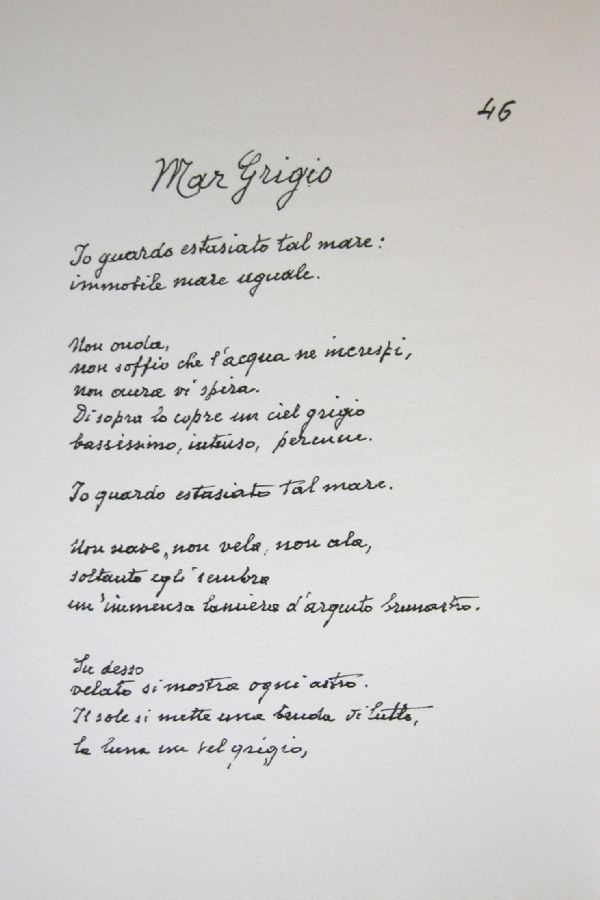 46
Mar Grigio
Io guardo estasiato tal mare:
immobile mare uguale.
Non onda,
non soffio che l'acqua ne increspi,
non aura vi spira.
Di sopra lo copre un ciel grigio
bassissimo, intenso, perenne.
Io guardo estasiato tal mare.
Non nave, non vela, non ala,
soltanto egli sembra
un'immensa lamiera d'argento brunastro.
Su desso
velato si mostra ogni astro.
Il sole si mette una benda di lutto,
la luna un vel grigio,